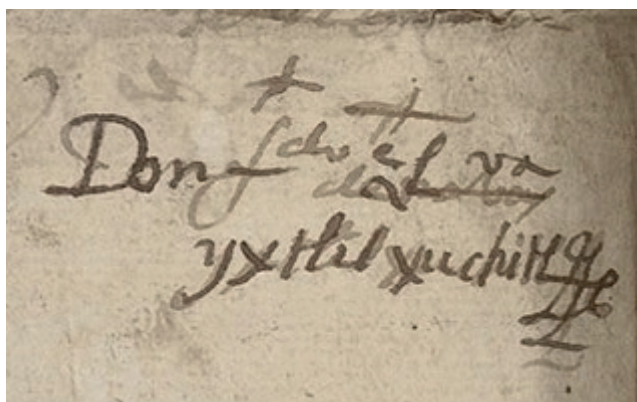 Don fdo de alva
yxtlilxuchitl